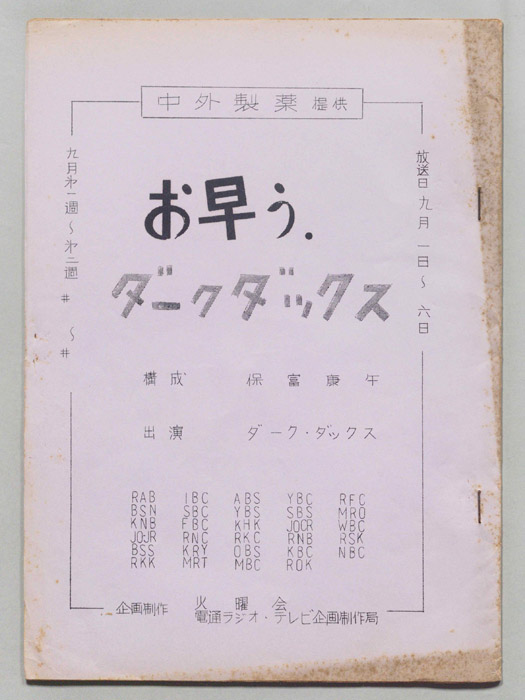 中外製薬 提供
放送日 九月一日～六日
お早う.
ダークダックス
九月第一週～第二週
#　～#
構成　保富康午
出演　ダーク・ダックス
RAB IBC ABS YBC RFC
BSN SBC YBS SBS MRO
KNB FBC KHK JOCR WBC
JOJR RNC RKC RNB RSK
BSS KRY OBS KBC NBC
RKK MRT MBC ROK
企画制作　火曜会
電通ラジオ・テレビ企画制作局